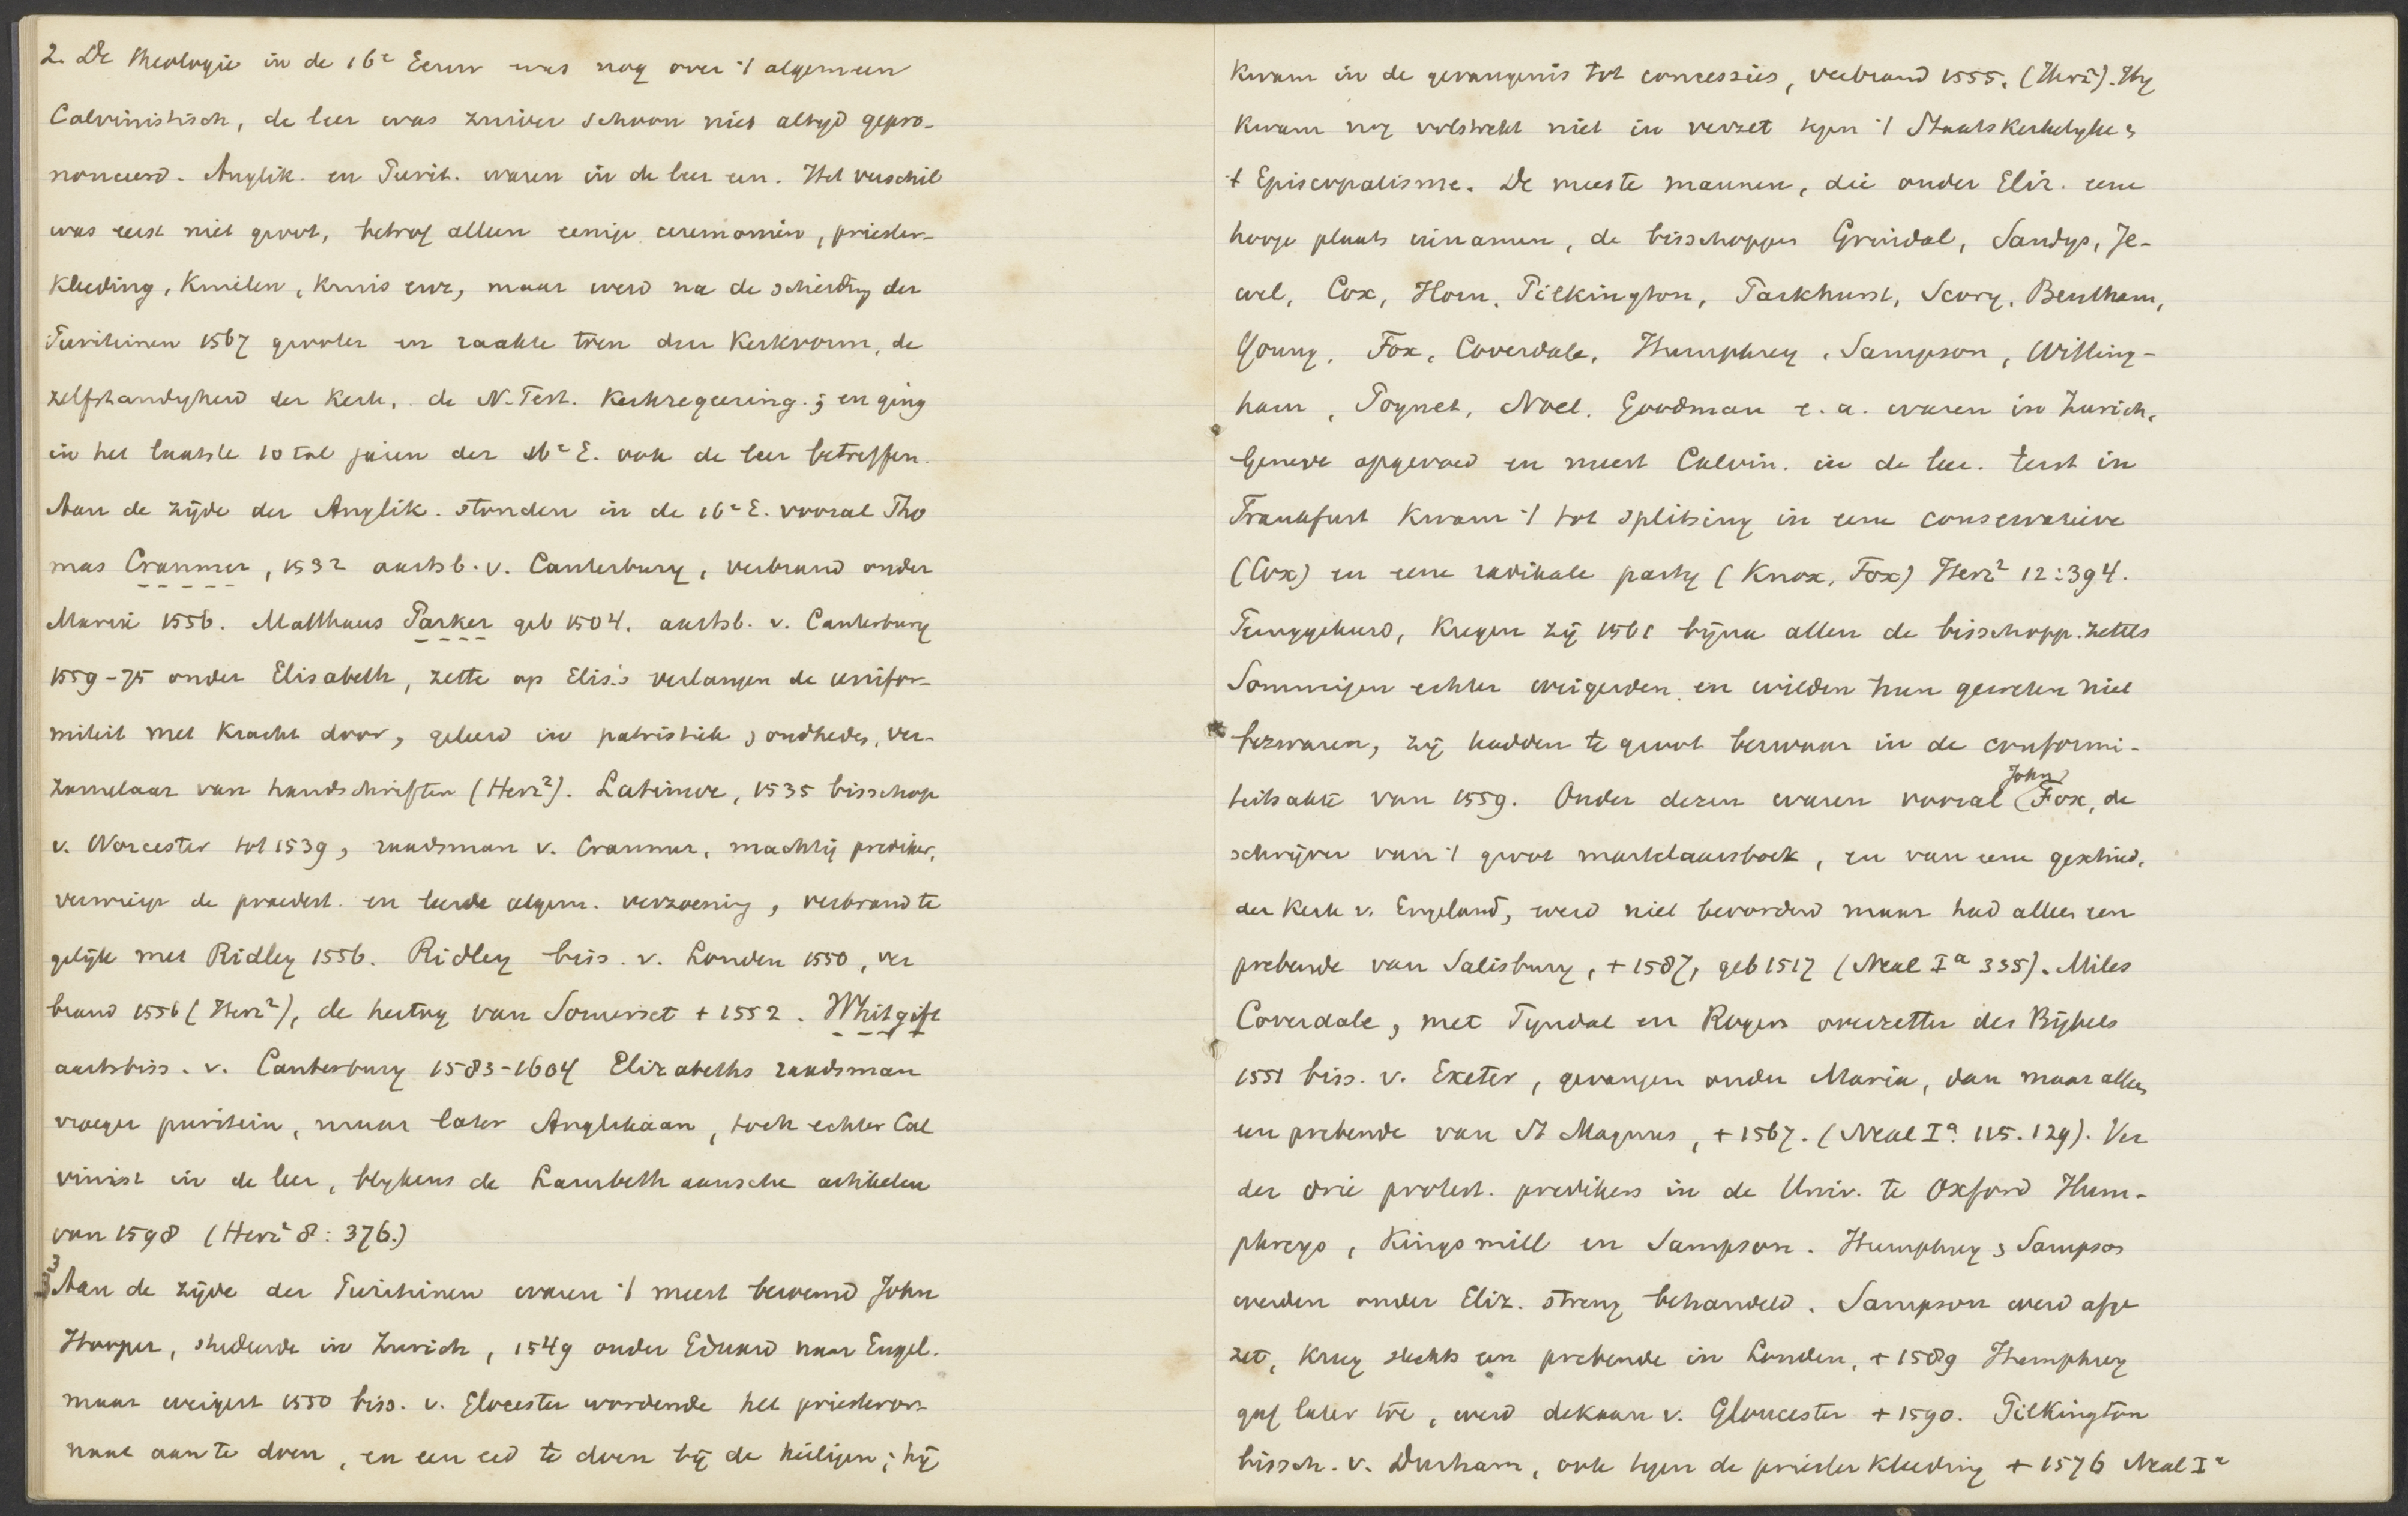 2. De theologie in de 16e Eeuw was nog over 't algemeen
Calvinistisch, de leer was zuiver schoon niet altijd gepro-
nonceerd. Anglik. en Purit. waren in de leer een. Het verschil
was eerst niet groot, betrof alleen eenige ceremoniën, priester-
kleeding, knielen, kruis enz, maar werd na de scheiding der
Puriteinen 1567 grooter en raakte toen den kerkvorm, de
zelfstandigheid der kerk, de N. Test. kerkregeering; en ging
in het laatste 10 tal jaren der 16e E. ook de leer betreffen.
Aan de zijde der Anglik. stonden in de 16e E. vooral Tho
mas Cranmer, 1532 aartsb. v. Canterbury, verbrand onder
Maria 1556. Matthaus Parker geb 1504. aartsb. v. Canterbury
1559-75 onder Elisabeth, zette op Elis.'s verlangen de unifor-
miteit met kracht door, geleerd in patristiek & oudheden, ver-
zamelaar van handschriften (Herz²). Latimer, 1535 bisschop
v. Worcester tot 1539, raadsman v. Cranmer, machtig prediker,
verwierp de praedest. en leerde algem. verzoening, verbrand te
gelijk met Ridley 1556. Ridley biss. v. Londen 1550, ver
brand 1556 (Herz²), de hertog van Somerset + 1552. Whitgift
aartsbiss. v. Canterbury 1583-1604 Elizabeths raadsman
vroeger puritein, maar later Anglikaan, toch echter Cal
vinist in de leer, blijkens de Lambethaansche artikelen
van 1598 (Herz² 8: 376.)
3 Aan de zijde der Puriteinen waren 't meest beroemd John
Hooper, studeerde in Zurich, 1549 onder Eduard naar Engel.
maar weigert 1550 biss. v. Glocester wordende het priesteror-
naat aan te doen, en een eed te doen bij de heiligen; hij
kwam in de gevangenis tot concessies, verbrand 1555. (Herz²). Hij
kwam nog volstrekt niet in verzet tegen 't Staatskerkelijke &
't Episcopalisme. De meeste mannen, die onder Eliz. eene
hooge plaats innamen, de bisschoppen Grindal, Sandys, Je-
wel, Cox, Horn, Pilkington, Parkhurst, Scory, Bentham,
Young, Fox, Coverdale, Humphrey, Sampson, Witting-
ham, Poynet, Noel, Goodman e. a. waren in Zurich,
Geneve opgevoed en meest Calvin. in de leer. Eerst in
Frankfurt kwam 't tot splitsing in eene conservatieve
(Cox) en eene radikale partij (Knox, Fox) Herz² 12:394.
Teruggekeerd, kregen zij 1561 bijna allen de bisschopp. zetels
Sommigen echter weigerden en wilden hun geweten niet
bezwaren, zij hadden te groot bezwaar in de conformi-
teitsakte van 1559. Onder dezen waren vooral John Fox, de
schrijver van 't groot martelaarsboek, en van eene geschied.
der Kerk v. Engeland, werd niet bevorderd maar had alleen een
prebende van Salisbury, + 1587, geb 1517 (Neal Iᵃ 335). Miles
Coverdale, met Tyndal en Rogers overzetter des Bijbels
1551 biss. v. Exeter, gevangen onder Maria, dan maar alleen
een prebende van St Magnus, + 1567. (Neal Iᵃ 115. 129). Ver
der drie protest. predikers in de Univ. te Oxford Hum-
phreys, Kingsmill en Sampson. Humphrey & Sampson
werden onder Eliz. streng behandeld. Sampson werd afge
zet, kreeg slechts een prebende in Londen, + 1589 Humphrey
gaf later toe, werd dekaan v. Gloucester + 1590. Pilkington
bissch. v. Durham, ook tegen de priesterkleeding + 1576 Neal Iᵃ